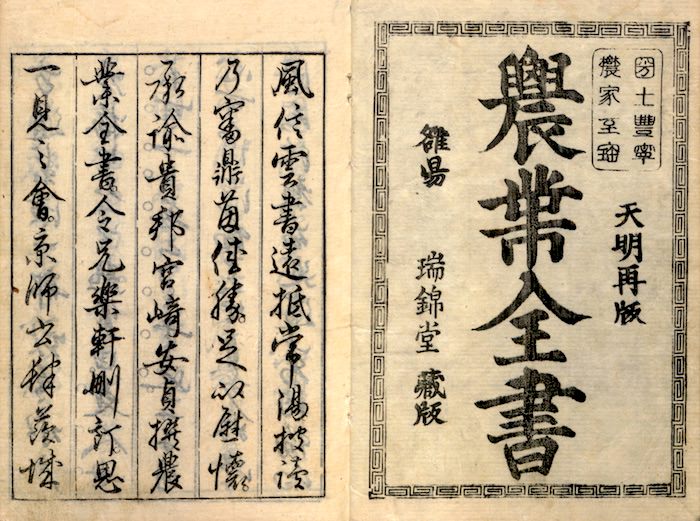 土豐寧
農家至寶
天明再版
農業全書
雒陽 瑞錦堂 藏版
風信雲書遠抵常陽披讀
乃審鼎茵佳勝足以慰懷。
承諭貴邦宮崎安貞撰農
業全書。令兄樂軒刪訂。思
一見之會。京師書肆茨城